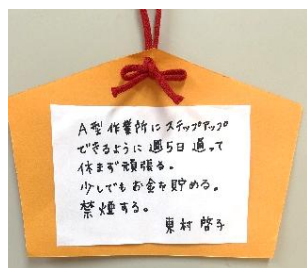 A型作業所にステップアップ
できるように週5日通って
休まず頑張る。
少しでもお金を貯める。
禁煙する。
東村 啓子